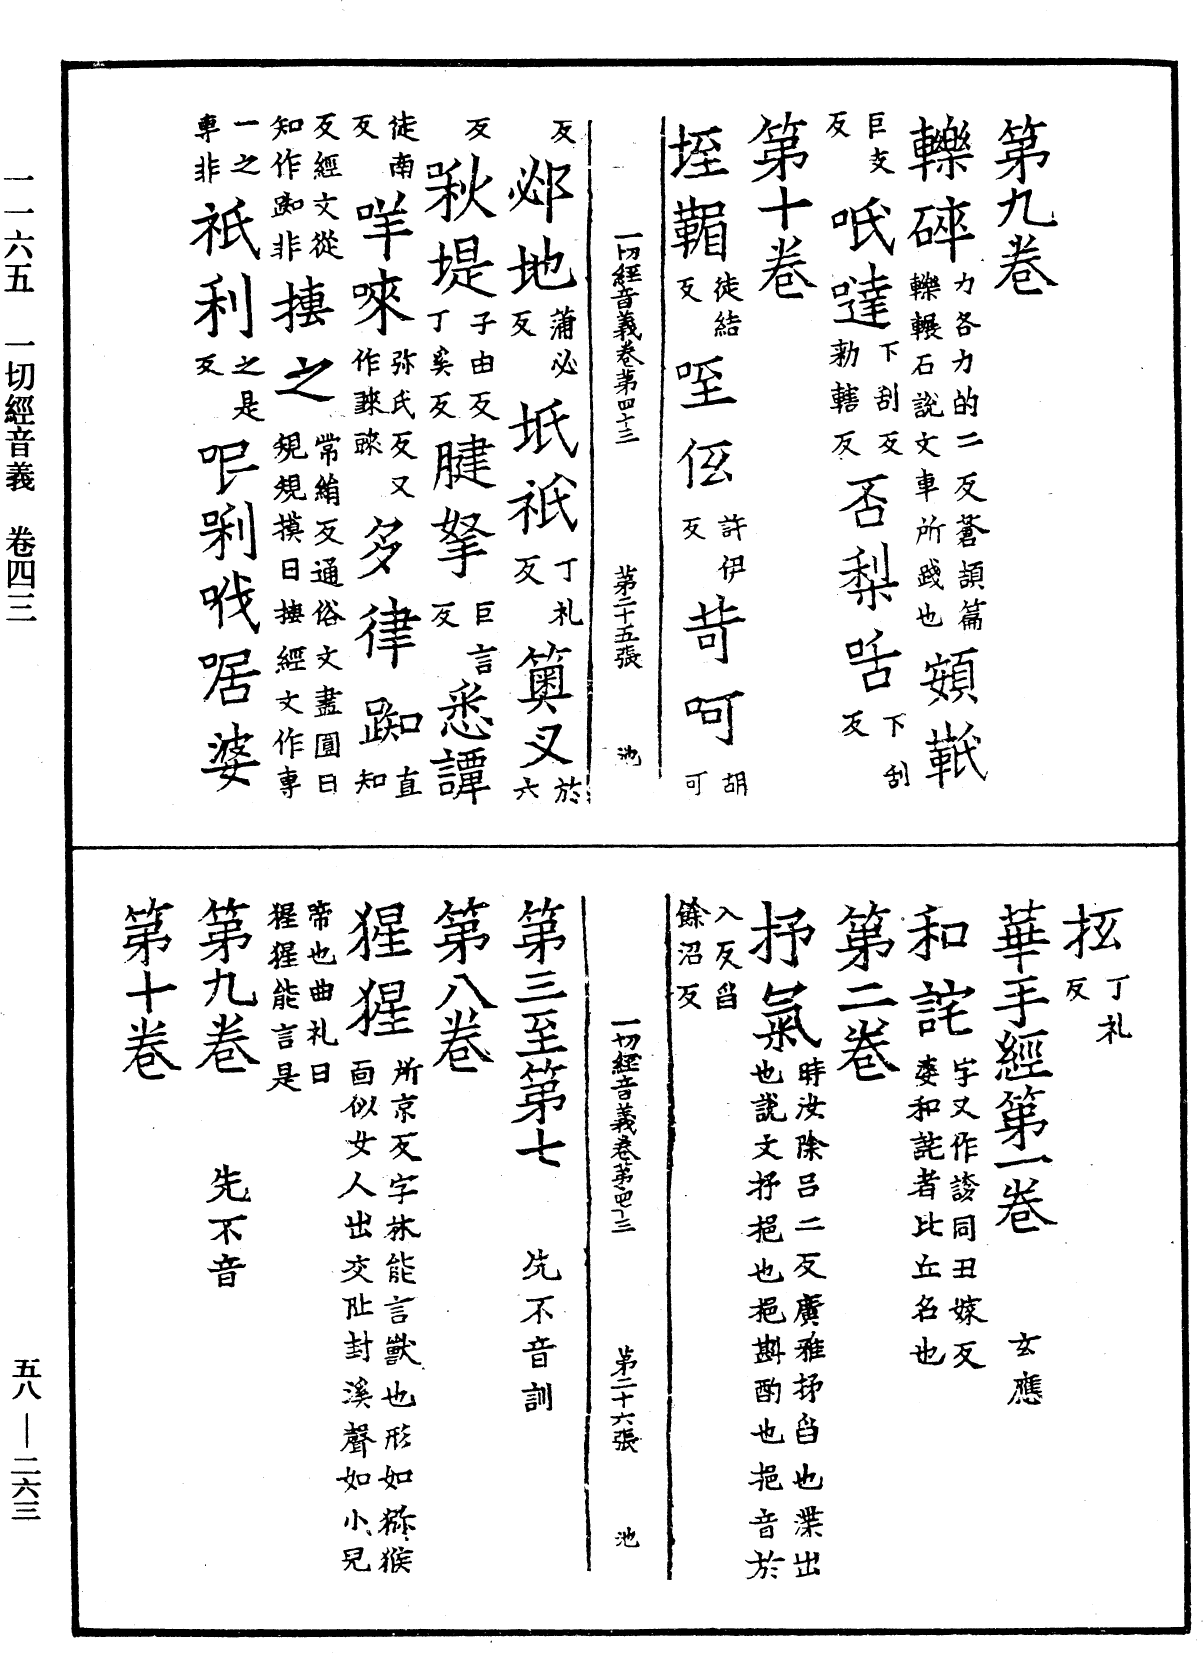 第九卷
轢碎力各力的二反蒼頡篇
轢輾石說文車所踐也頞䩚
巨支
反哦噠下刮反
勑轄反否梨咶下刮
反
第十卷
垤䩉徒結
反咥伭許伊
反苛呵胡
可
一切經音義卷第四十三 第二十五張 池
反邲地蒲必
反坁祇丁礼
反䉛叉於
六
反啾堤子由反
丁奚反腱拏巨言
反悉譚
徒南
反咩唻弥氏反又
作䋛䁞多律踟直
知
反經文從
知作踟非摶之常絹反通俗文盡圓曰
規規摸曰摶經文作專
一之
專非祇利之是
反呎唎哦啹婆
抵丁礼
反
華手經第一卷 玄應
和詫字又作諺同丑嫁反
婆和詫者比丘名也
第二卷
抒氣時汝除呂二反廣雅抒舀也渫出
也說文抒挹也挹斟酌也挹音於
入反舀
餘沼反
一切經音義卷第四十三 第二十六張 池
第三至第七 先不音訓
第八卷
猩猩所京反字林能言獸也形如猕猴
面似女人出交阯封溪聲如小兒
啼也曲礼曰
猩猩能言是
第九卷 先不音
第十卷
一一六五 一切經音義 卷四三
五八—二六三